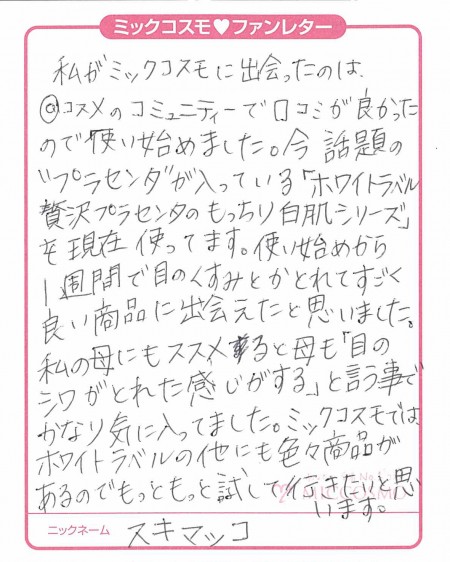 ミックコスモ♥ファンレター
私がミックコスモに出会ったのは、
@コスメのコミュニティーで口コミが良かった
ので使い始めました。今話題の
"プラセンタ"が入っている「ホワイトラベル
贅沢プラセンタのもっちり白肌シリーズ」
を現在使ってます。使い始めから
1週間で目のくすみとかとれてすごく
良い商品に出会えたと思いました。
私の母にもススメると母も「目の
シワがとれた感じがする」と言う事で
かなり気に入ってました。ミックコスモでは
ホワイトラベルの他にも色々商品が
あるのでもっともっと試して行きたいと思
います。
ニックネーム スキマッコ